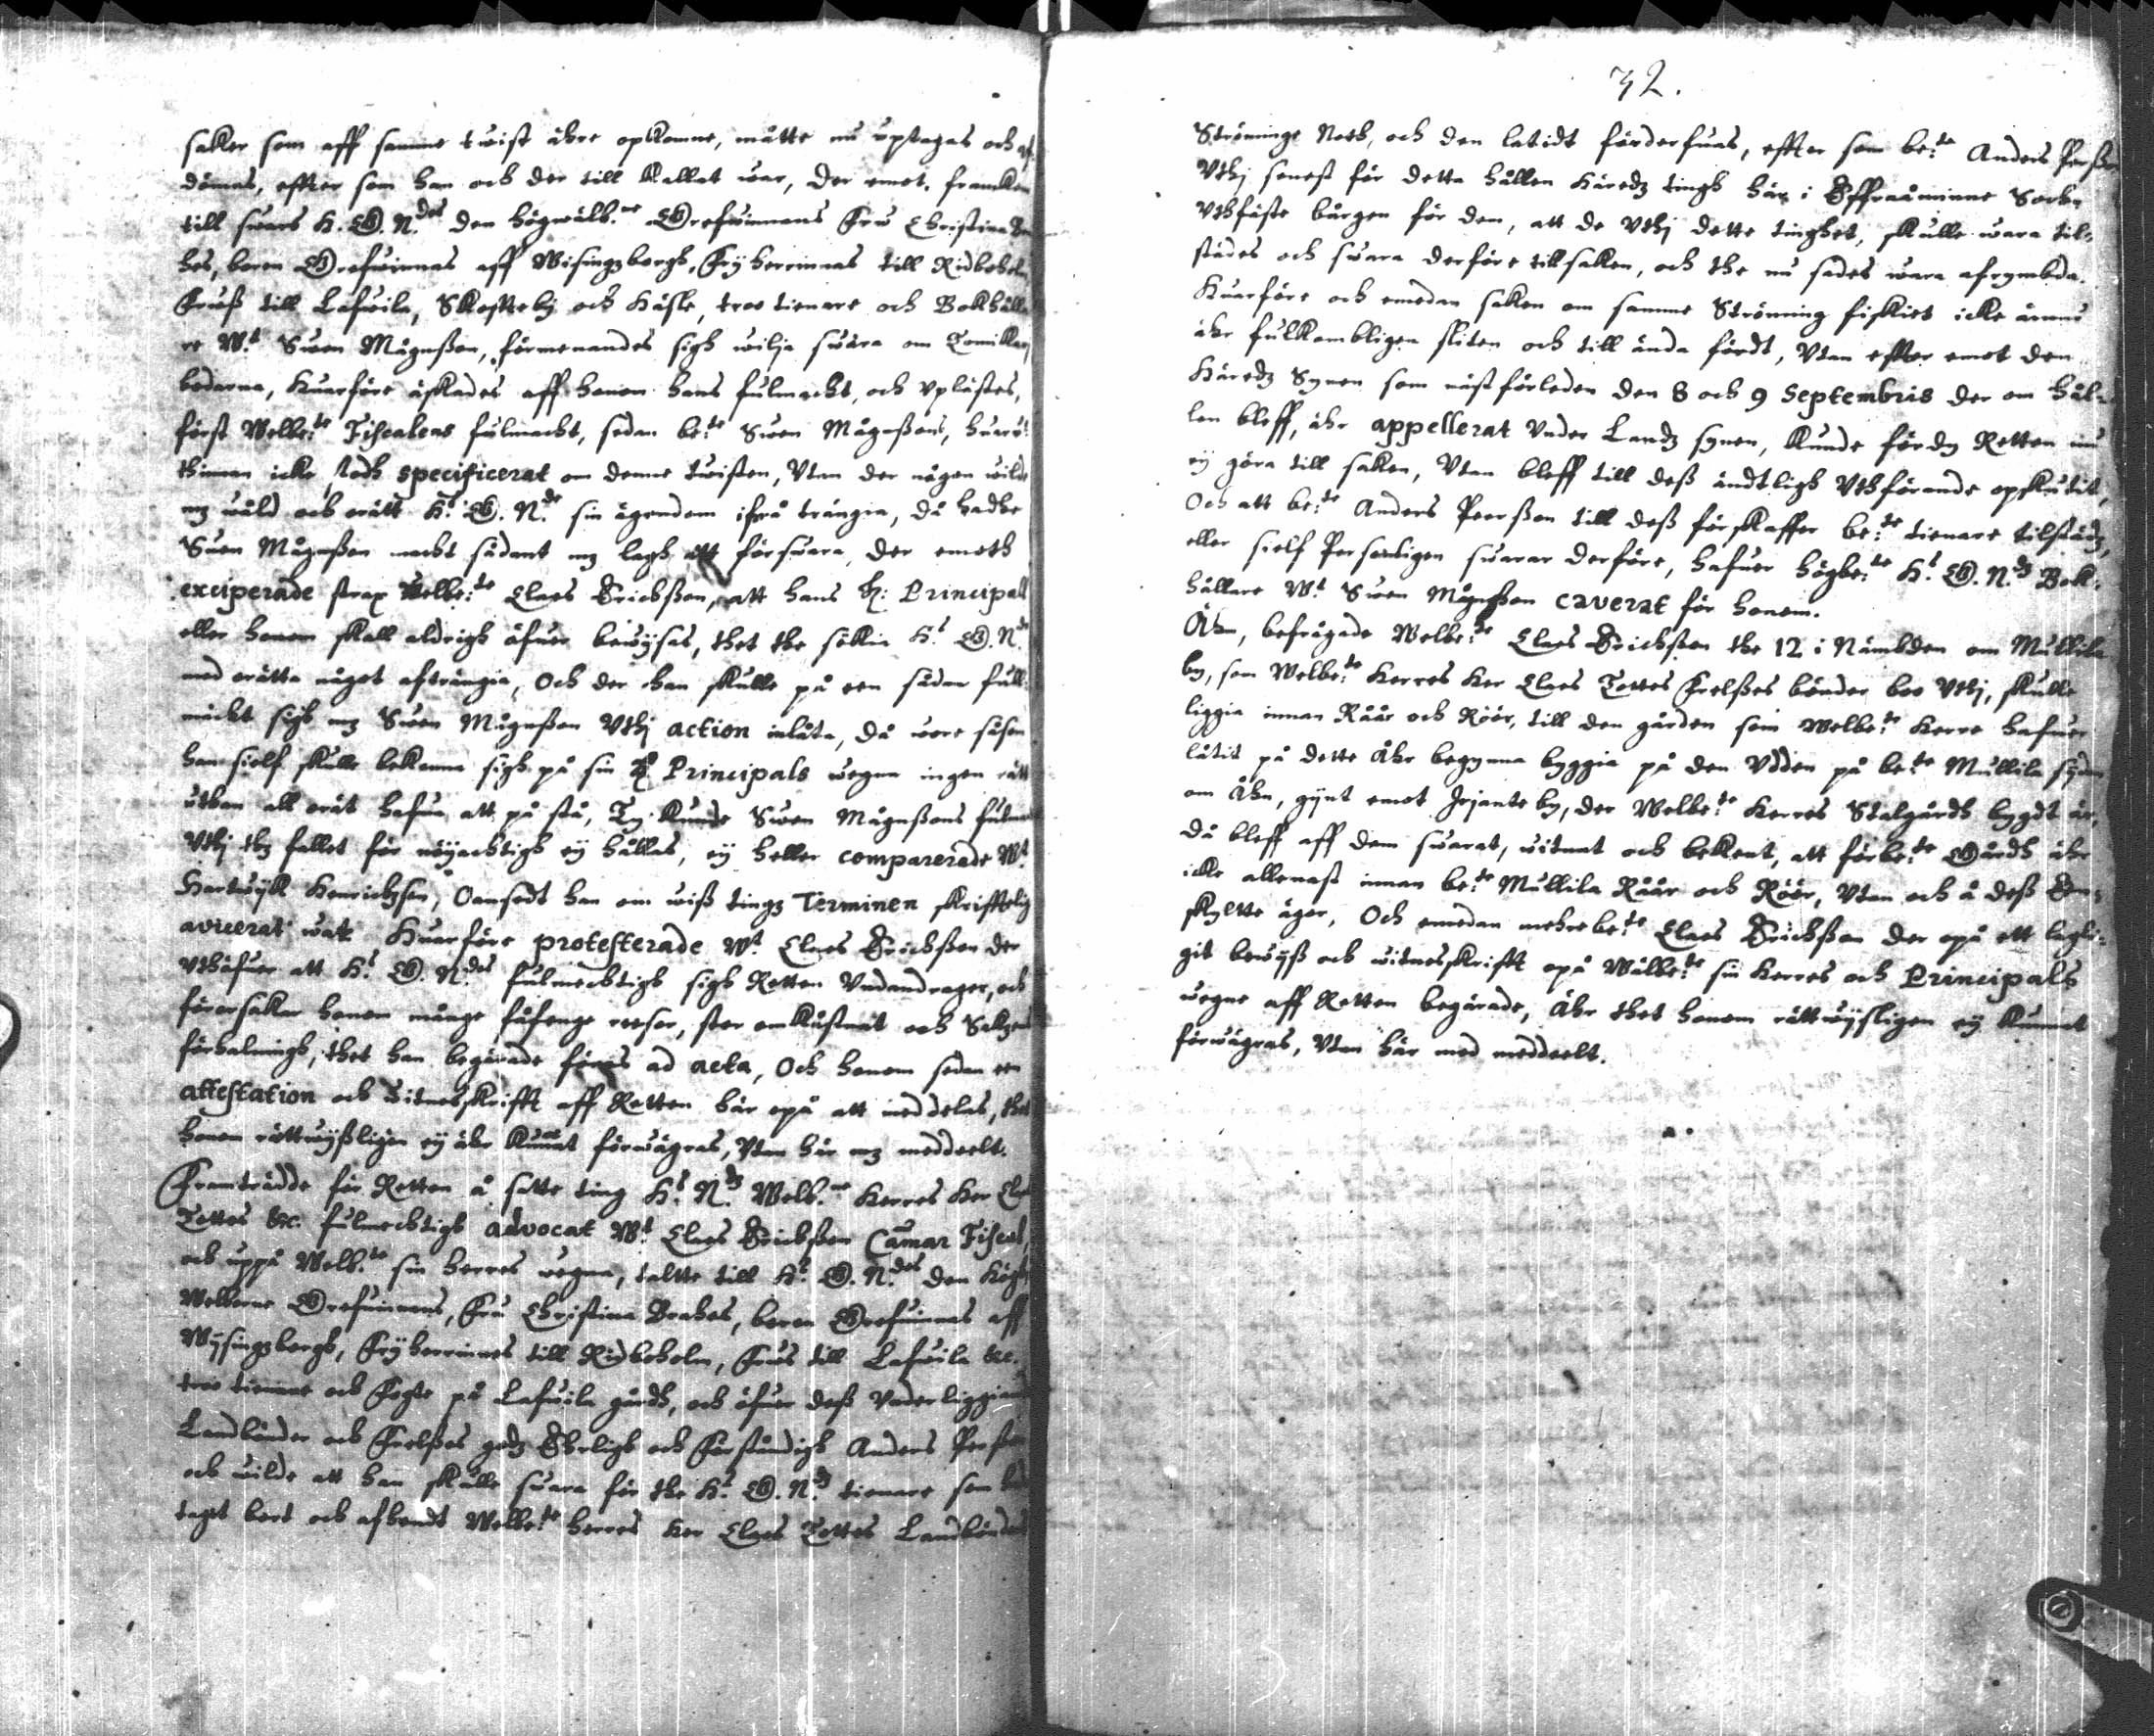 saker som aff samme twist ähre opkomne, måtte nu uptagas och af-
dömas, effter som han och der till kallat war, der emot, framkom
till swars H. G. N:des den högwälb:ne Grefwinnans Fru Christina Bra
hes, boren Grefwinnas aff Wisingzborgh, Fryherrinnas till Ridboholm
Fruß till Lafwila, Skofteby och Häsle, troo tienare och Bokhålla
re W:t Swen Mågnßon, förmenandes sigh wilja swara om Tomikka
bodarna, Huarföre äskades aff honom hans fulmacht, och uplästes,
först Welbe:te Fiscalens fulmacht, sedan be:te Swen Mågnßons, huaru-
thinnan icke stodh specificerat om denne twisten, Utan der någon wilde
mz wåld och orätt H:s G. N:de sin ägendom ifrå trängia, då hadhe
Swen Mågnßon macht sådant mz lagh att förswara, der emoth
exciperade strax Welbe:te Claes Erichßon, att hans H: Principal
eller honom skall aldrigh öfuer bewysas, thet the sökia H:s G. N:de
med orätta något afträngia, Och der han skulle på een sådan full-
mäckt sigh mz Swen Mågnßon Uthj action inlåta, då wore såsom
han sielf skulle bekenna sigh på sin H: Principals wegna ingen rätt
uthan all orät hafua att på stå, Ty kunde Swen Mågnßons fulm
Uthj thz fallet för nöyachtigh ey hållas, ey heller comparerade W:t
Hartwijk Henrichßon, Oansedt han om wiß tingz Terminen skrifftelig
aviserat wart Huarföre protesterade W:t Claes Erichßon der
uthöfuer att H:s G. N:des fulmechtigh sigh Retten Undandrager, och
förorsakar honom många fåfenge reesor, stor omkåstnat och Sakzens
förhalningh, thet han begärade föras ad acta, Och honom sedan een
attestation och witnesskrifft aff Retten här opå att meddelas, thet
honom rättwyßligen ey ähr kunnat förwägras, Utan här mz meddeelt.
Framträdde för Retten å satte ting H:s N:dz Welb:ne Herres Her Claes
Tottes &c. fulmechtigh advocat W:t Claes Erichßon Camar Fiscal,
och uppå Welb:te sin herres wegna, taltte till H:s G. N:des den Högh
Welborne Grefuinnans, Fru Christina Brahes, boren Grefuinnas aff
Wysingzborgh, Fryherrinnes till Ridboholm, Frus till Lafwila &c.
troo tienare och Fogte på Lafwila gårdh, och öfuer deß Underliggiande
Landbönder och Frelßes godz Ehrligh och Förståndigh Anders Perßon
och wilde att han skulle swara för the H:s G. N:dz tienare som
taget bort och afhendt Welbe:te herres Her Claes Tottes Landbönders
32.
Strömings Noth, och den latidt förderfuas, effter som be:te Anders Perßon
Uthj senest för detta hållen Häredz tingh här i Sochn
Uthfäste bårgen för den, att de Uthj dette tinghet, skulle wara til-
städes och swara derföre till saken, och the nu sades wara afrymbda.
Huarföre och emedan saken om samme Strömingz fiskiet icke ännu
ähr fulkombligen sliten och till ända fördt, Utan effter emot den
Häredz Synen som näst förleden den 8 och 9 Septembris der om hål-
len bleff, ähr appellerat Under Landz synen, kunde fördy Retten nu
ey göra till saken, Utan bleff till deß ändtligh Uthförande opskutit,
Och att be:te Anders Peerßon till deß förskaffer be:te tienare tilstädz,
eller sielf Personligen swarar derföre, hafuer högbe:te H:s G. N:dz Bok-
hållare W:t Swen Mågnßon caverat för honom.
Ähn, befrågade Welbe:te Claes Erichßon the 12 i Nämbden om Mullila
by, som Welbe:te Herres Her Claes Tottes Frelßes bönder boo Uthj, skulle
liggia innan Råår och Röör, till den gården som Welbe:te Herre hafuer
låtit på dette Åhr begynna byggia på den Udden på be:te Mullila sydan
om Åhn, gynt emot by, der Welbe:te Herres Stalgårdh bygdt är,
då bleff aff dem swarat, witnat och bekent, att förbe:te Gårdh ähr
icke allenast innan be:te Mullila Råår och Röör, Utan och å deß Een-
skyltte ägor, Och emedan mehrbe:te Claes Erichßon der opå ett lagli-
git bewyß och witnesskrifft opå Wälbe:te sin Herres och Principals
wegne aff Retten begärade, Ähr thet honom rättwysligen ey kunnat
förwägras, Utan här med meddeelt.